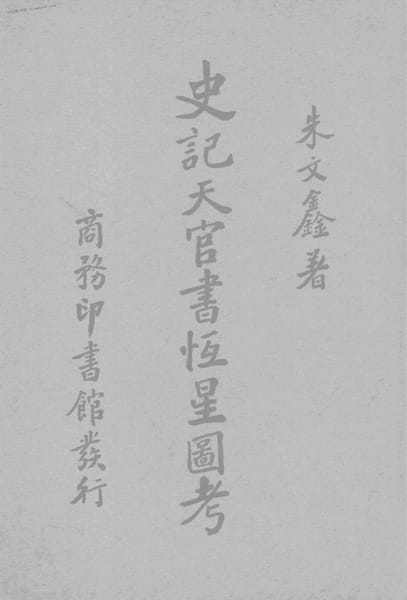 朱文鑫著
史記天官書恆星圖考
商務印書館發行